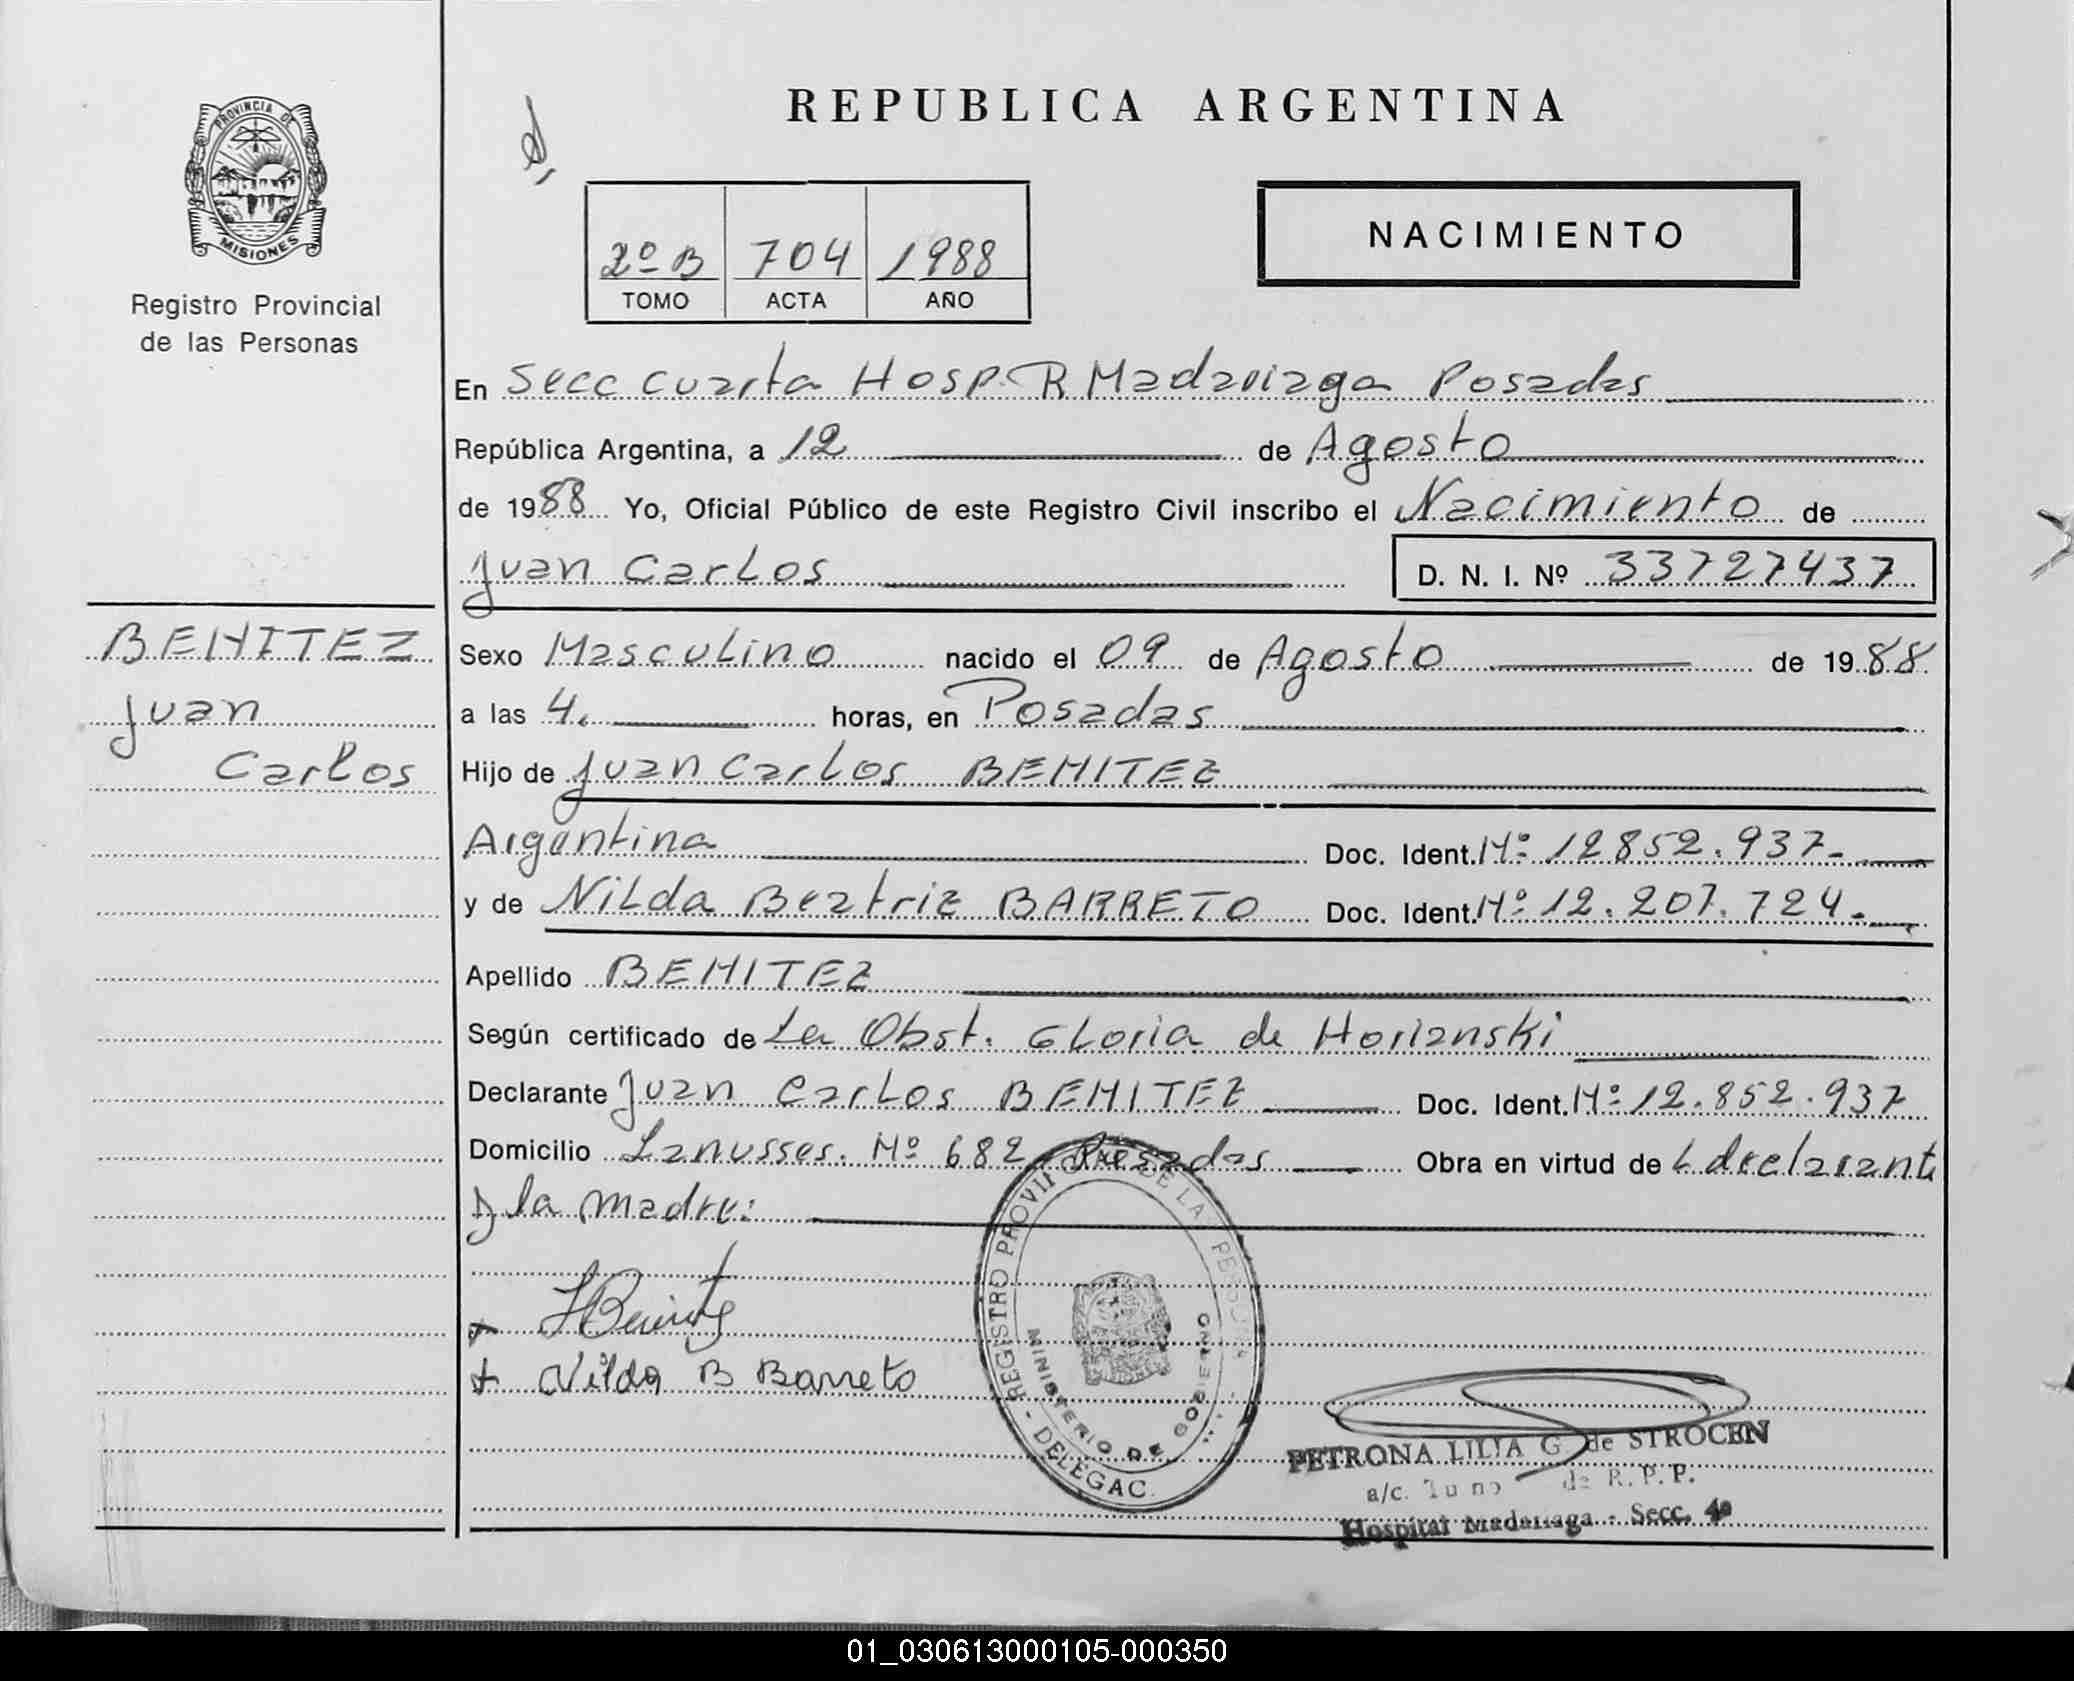 PROVINCIA DE
MISIONES
Registro Provincial
de las Personas
REPUBLICA ARGENTINA
NACIMIENTO
2º B 704 1988
TOMO ACTA AÑO
En Secc Cuarta Hosp. R Madariaga Posadas
República Argentina, a 12 de Agosto
de 1988 Yo, Oficial Público de este Registro Civil inscribo el Nacimiento de
Juan Carlos D. N. I. Nº 33727437
BENITEZ
Juan
Carlos
Sexo Masculino nacido el 09 de Agosto de 1988
a las 4. horas, en Posadas
Hijo de Juan Carlos BENITEZ
Argentina Doc. Ident. Nº 12852.937-
y de Nilda Beatriz BARRETO Doc. Ident. Nº 12.207.724-
Apellido BENITEZ
Según certificado de La Obst. Gloria de Horianski
Declarante Juan Carlos BENITEZ Doc. Ident. Nº 12.852.937
Domicilio Lanusses. Nº 682 Posadas Obra en virtud de L declarante
y la Madre:
+ Nilda B Barreto
REGISTRO PROVINCIAL DE LAS PERSONAS
MINISTERIO DE GOBIERNO
- DELEGAC.
PETRONA LILIA G de STROCEN
a/c. de R. P. P.
Hospital Madariaga - Secc. 4a
01_030613000105-000350